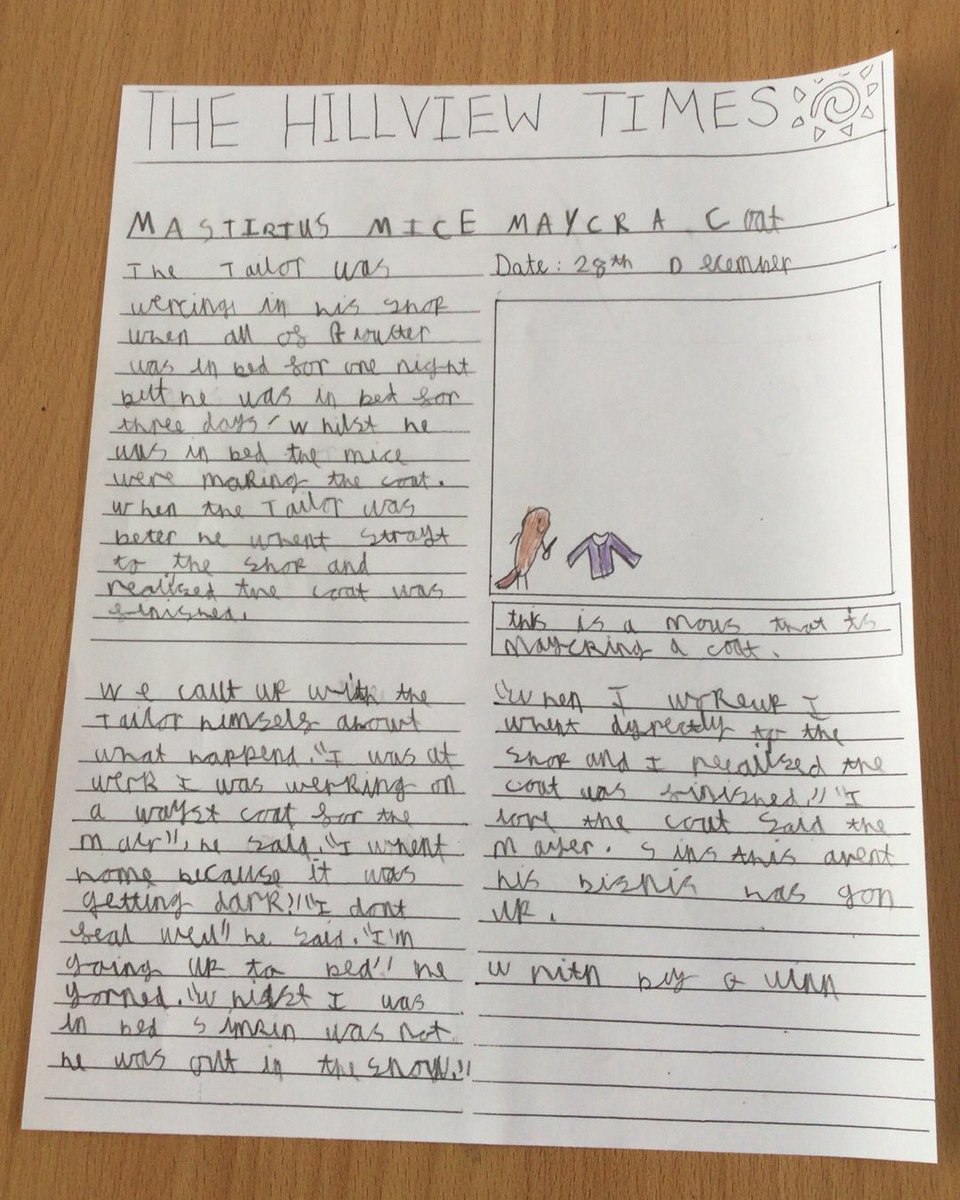 THE HILLVIEW TIMES
MASTIRIUS MICE MAYCR A Coat
The Tailor was
wercing in his shop
when all of Glouster
was in bed for one night
but he was in bed for
three days. whilst he
was in bed the mice
were making the coat.
when the Tailor was
beter he whent strayt
to the shop and
realised the coat was
finished.
Date: 28th December
this is a mous that is
maycring a coat.
We cault up with the
Tailor himself about
what happend. "I was at
werk I was werking on
a wayst coat for the
Mair", he said. "I whent
home because it was
getting dark!" "I dont
feal well" he said. "I'm
going up to bed" he
yorned. "whilst I was
in bed Simpin was not
he was out in the snow."
"When I wokeup I
whent dyrectly to the
shop and I realised the
coat was finished!" "I
love the cout said the
Mayer. Sins this avent
his bisnis has gon
up.